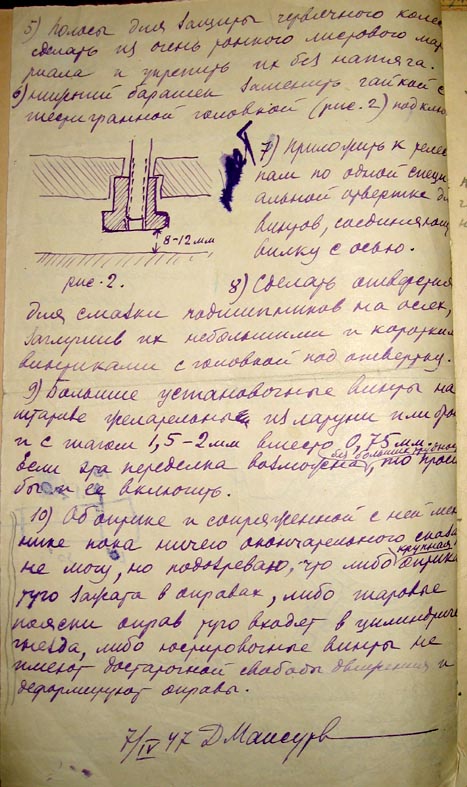 5) Полосы для защиты червячного колеса
сделать из очень тонкого листового мате
риала и укрепить их без натяга.
6) Нижний барашек заменить гайкой с
шестигранной головкой (рис. 2) под ключ
7) Приложить к телес
пам по одной специ
альной отвертке для
винтов, соединяющ
вилку с осью.
8-12 мм
рис. 2.
8) Сделать отверстия
для смазки подшипников на осях,
заглушив их небольшими и короткими
винтиками с головкой под отвертку.
9) Большие установочные винты на
штативе желательны из латуни или
и с шагом 1,5-2 мм вместо 0,75 мм.
без больших трудно
Если эта переделка возможна, то просил
бы и ее включить.
10) Об оптике и сопряженной с ней меха
нике пока ничего окончательного сказать
крупная
не могу, но подозреваю, что либо оптика
туго зажата в оправах, либо шаровые
пояски оправ туго входят в цилиндрич
гнезда, либо юстировочные винты не
имеют достаточной свободы движения и
деформируют оправы.
7/IV 47 ДМаксутов